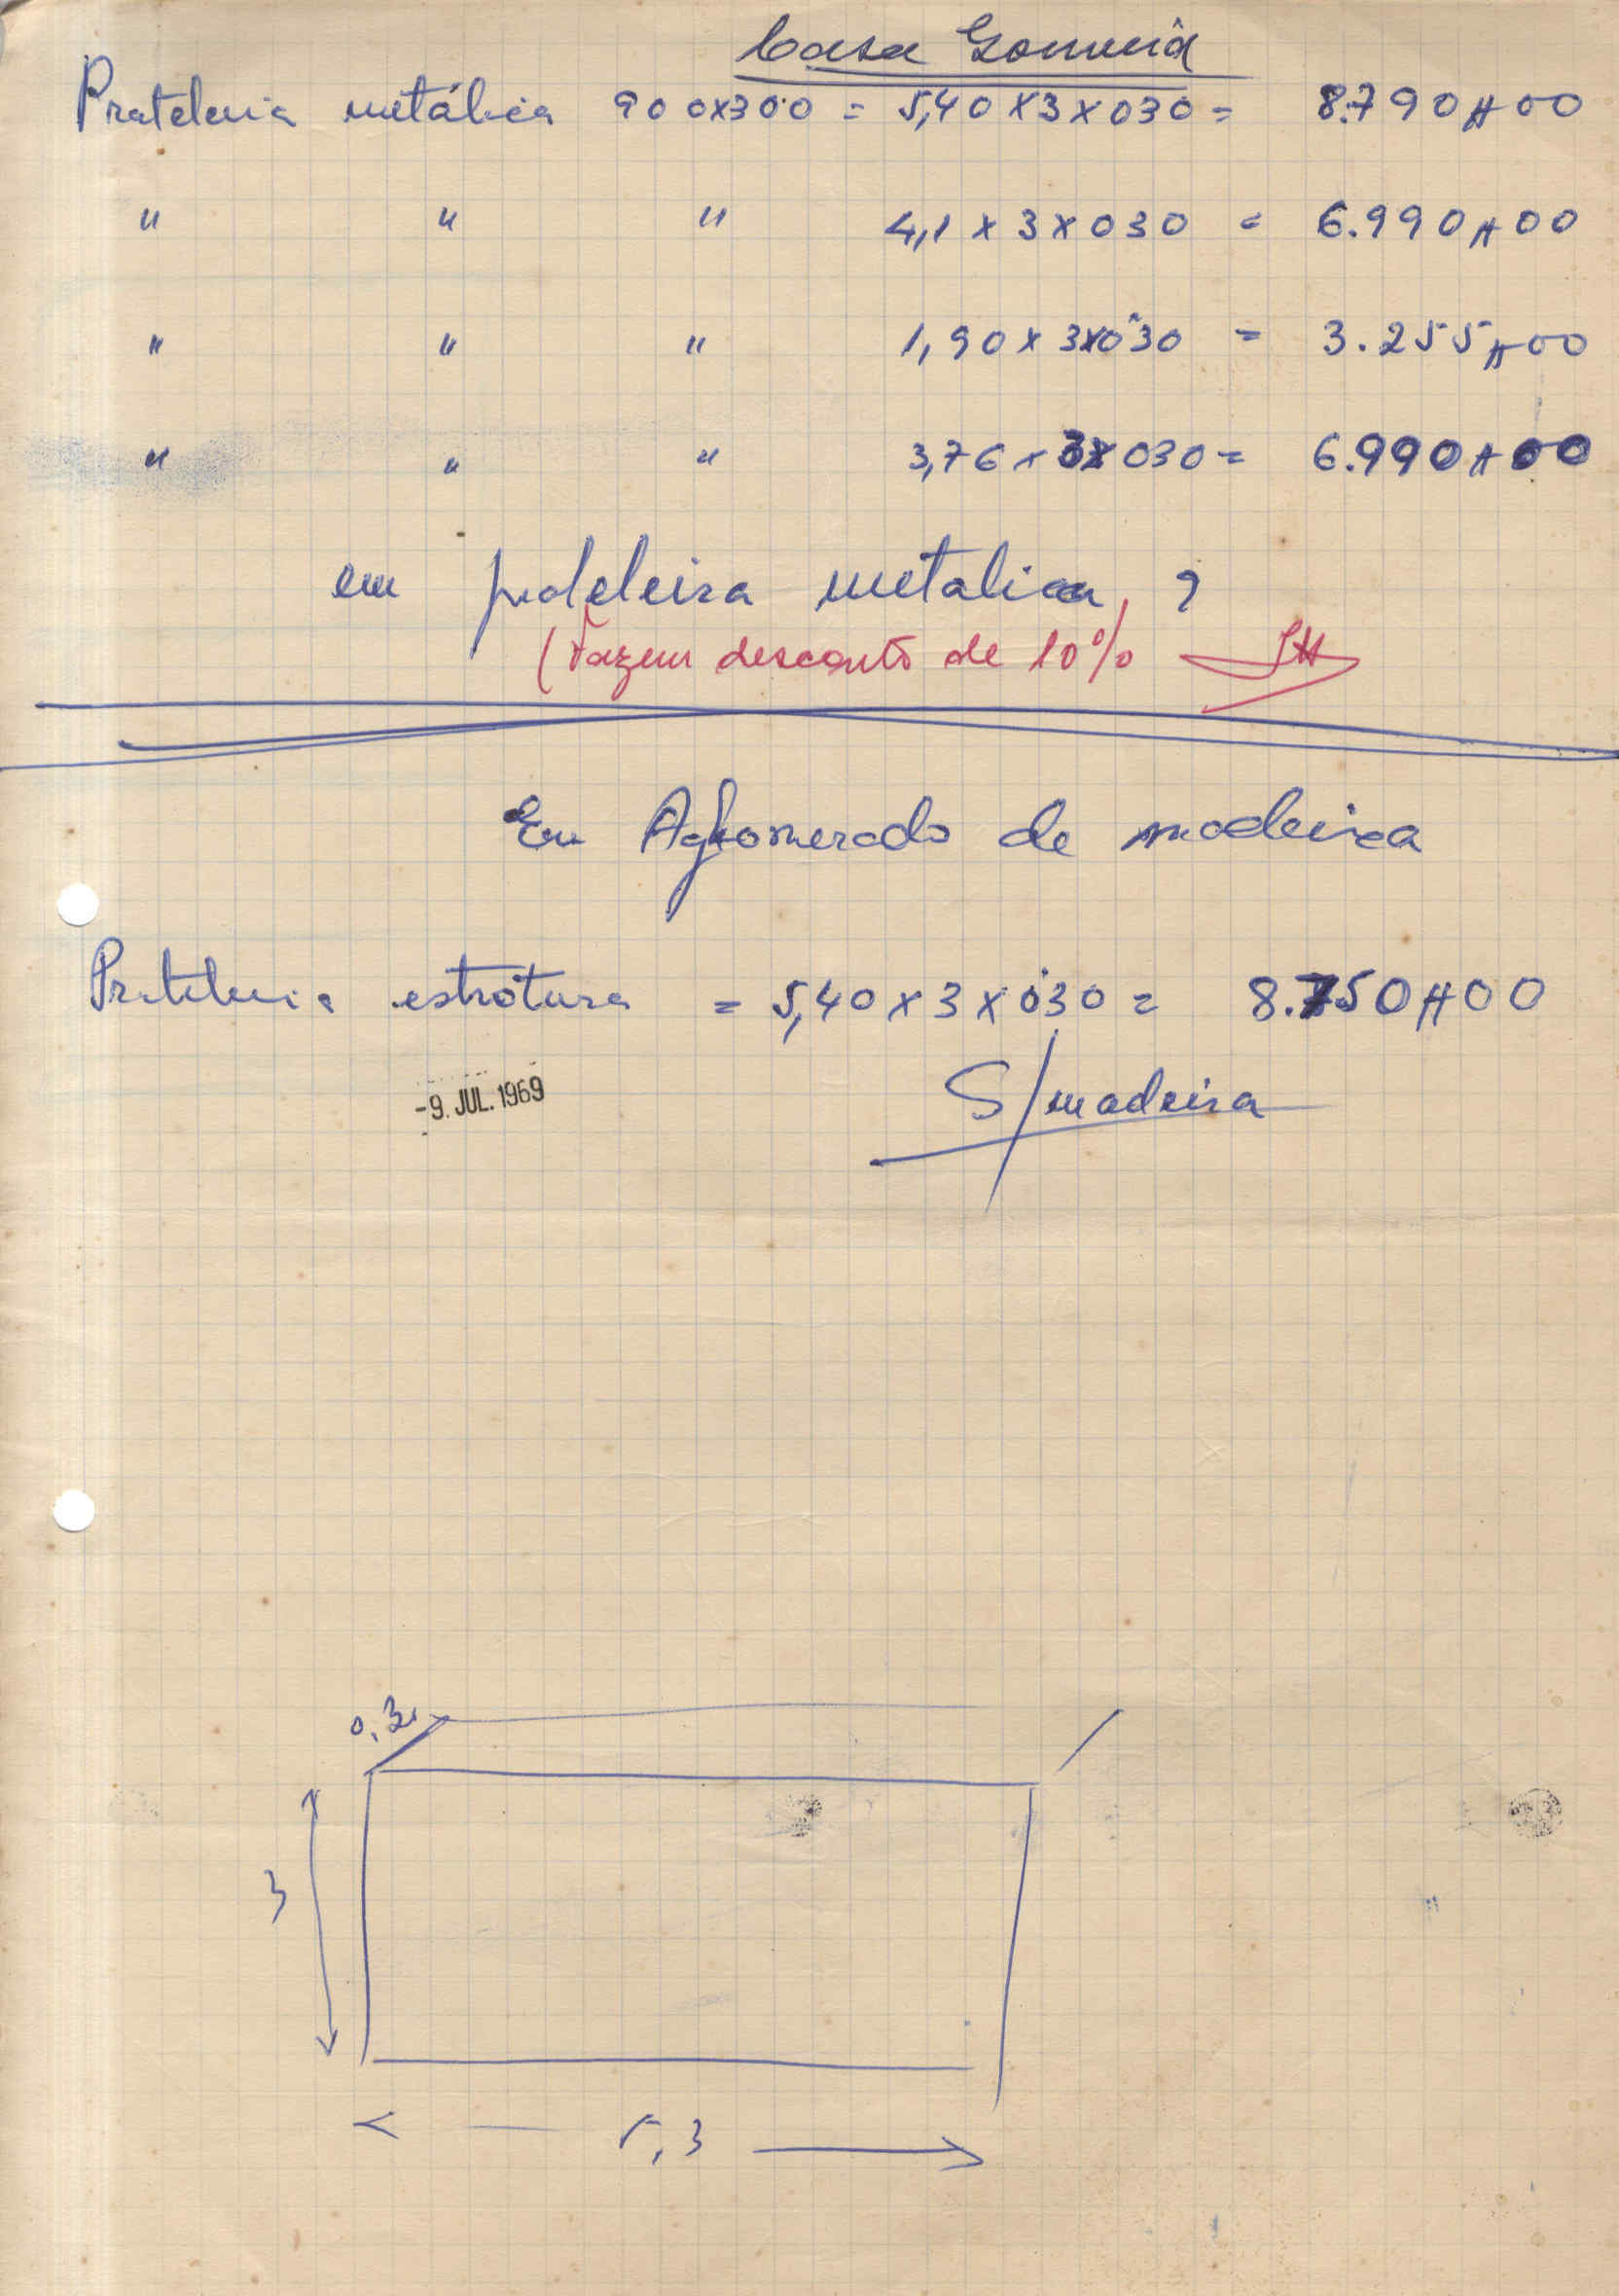 Casa
Prateleira metálica 900x300 = 5,40 x 3 x 030 = 8.790$00
" " " 4,1 x 3 x 030 = 6.990$00
" " " 1,90 x 3x030 = 3.255$00
" " " 3,76 x 3x 030 = 6.990$00
em prateleira metalica ?
(Fazem desconto de 10%
Em Aglomerado de madeira
Prateleira estrotura = 5,40 x 3 x 030 = 8.750$00
-9. JUL. 1969
S/madeira
0,30
3
5,3